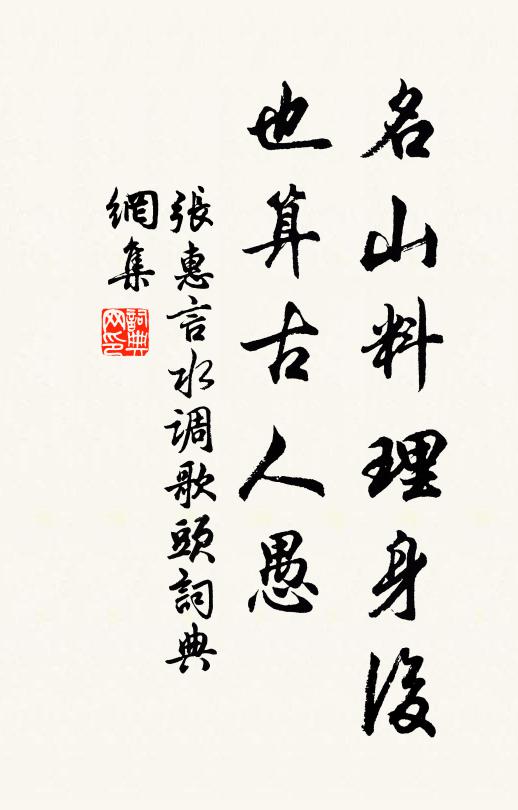 名山料理身後
也算古人愚
張惠言水调歌頭詞典
網集
詞典网印